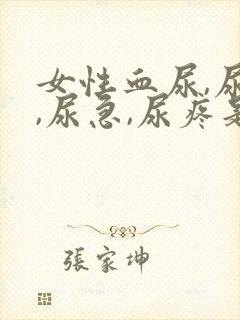 女性血尿,尿
,尿急,尿疼是
張家坤